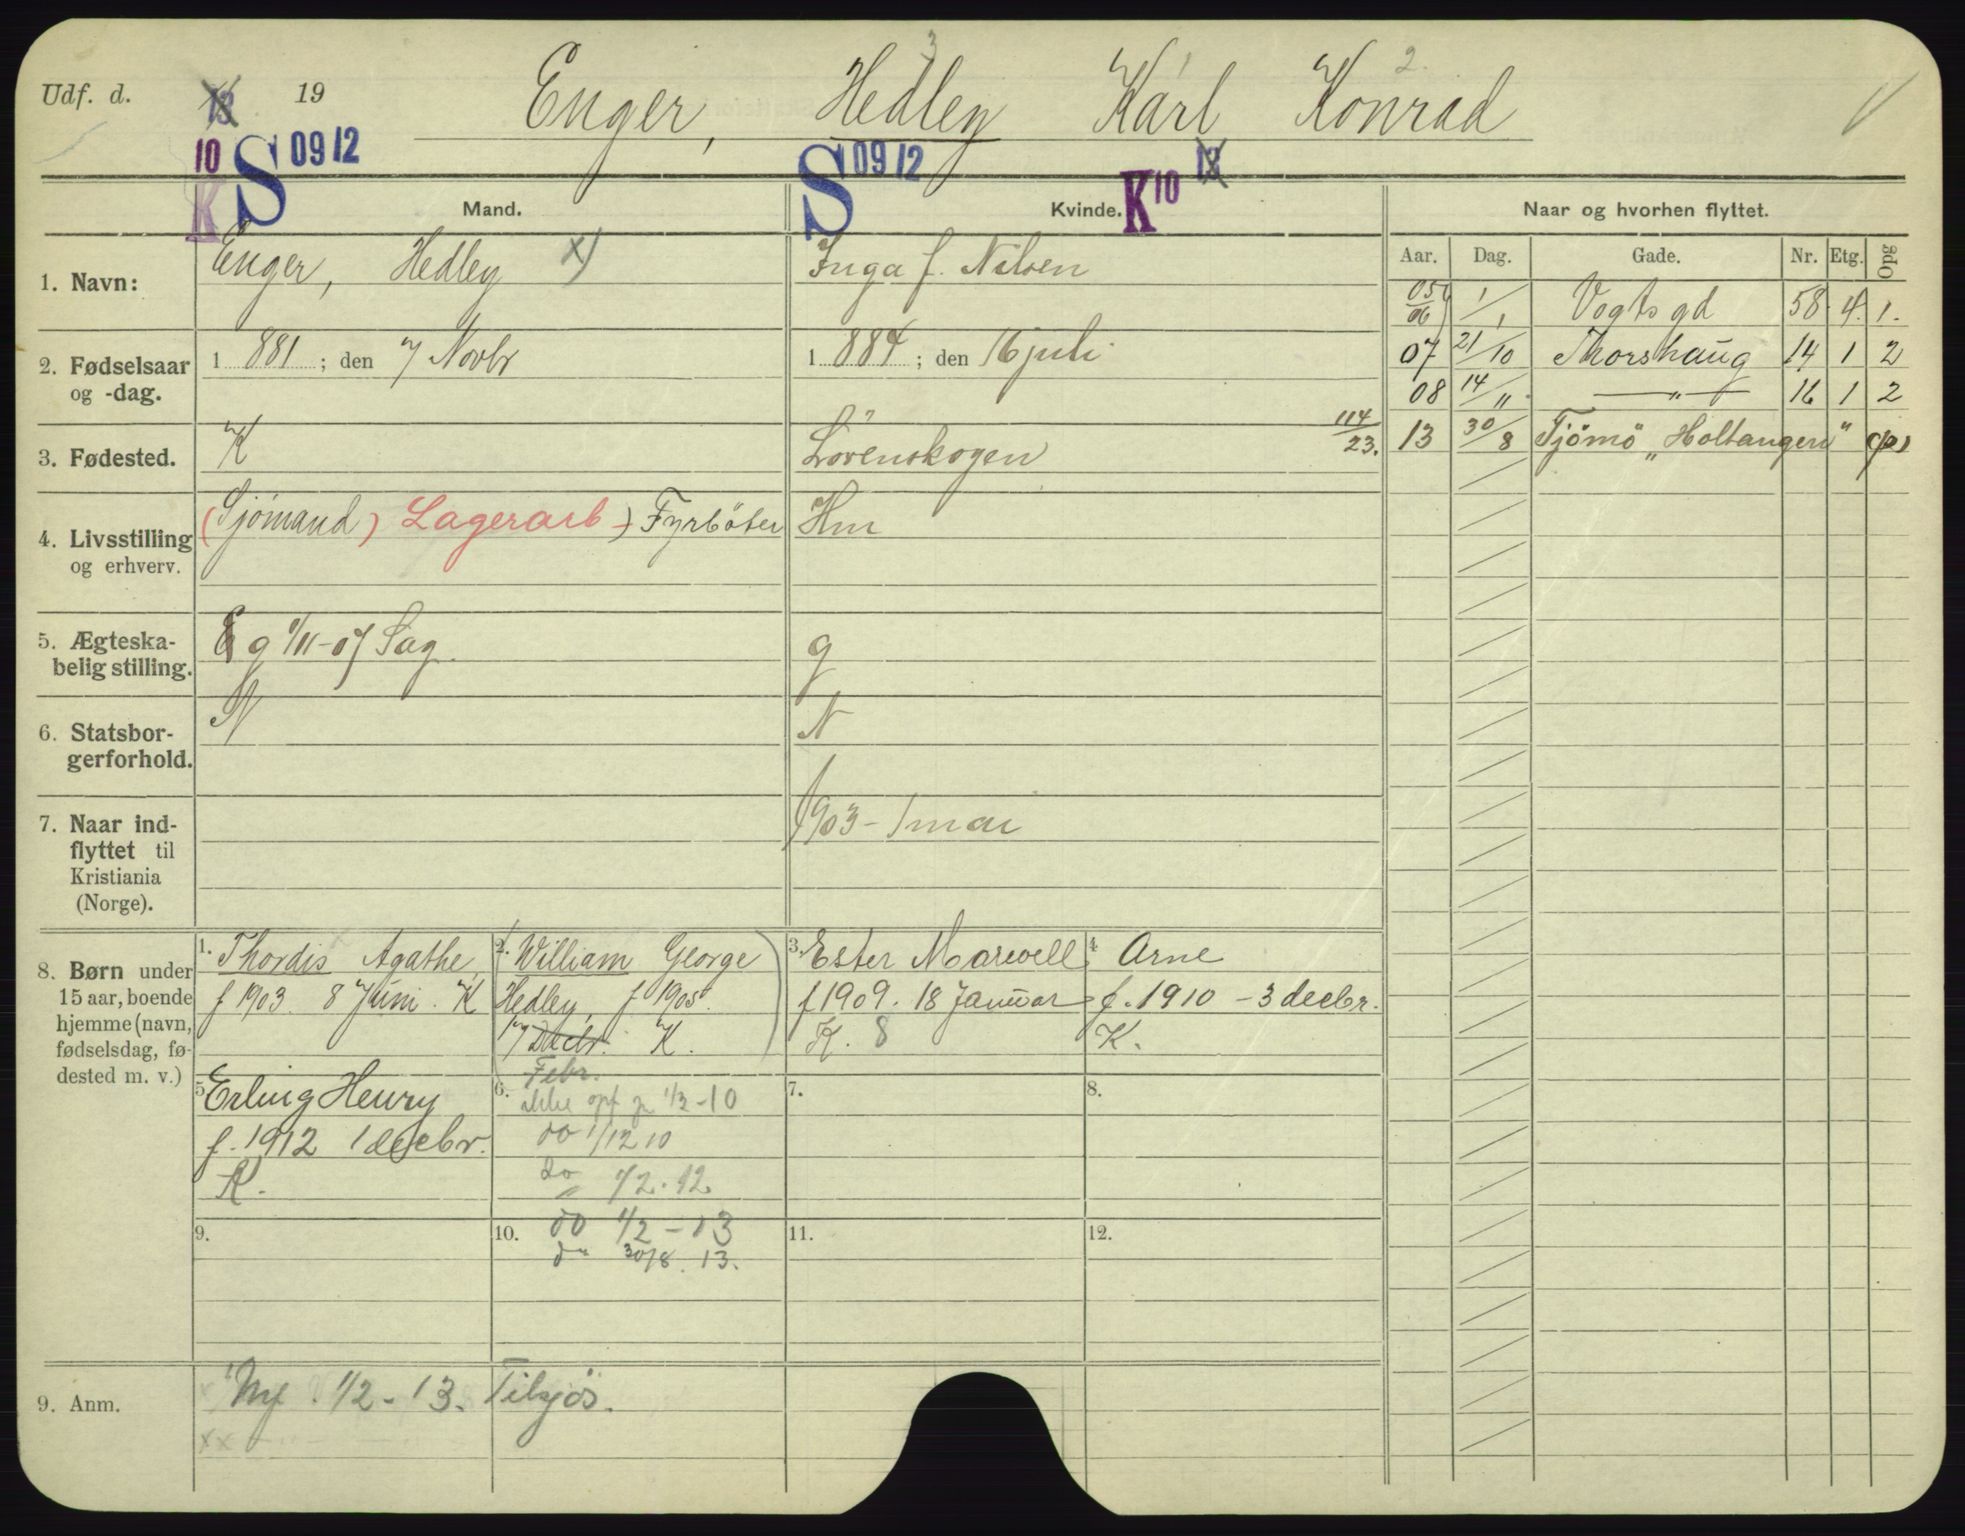 3 1 2.
Udf. d. 13 19 Enger, Hedley Karl Konrad
10 K S 09 12 S 09 12 K 10 13
Mand. Kvinde. Naar og hvorhen flyttet.
Aar. Dag. Gade. Nr. Etg. Opg
1. Navn: Enger, Hedley x) Inga f. Nilsen
05/06 1/1 Vogts gd 58 4. 1.
2. Fødselsaar og -dag. 1 881 ; den 7 Novbr 1 884 ; den 16 juli
07 21/10 Thorshaug 14 1 2
08 14/11 — „ — 16 1 2
3. Fødested. K Lörenskogen 114/23.
13 30/8 Tjömö „Holtangen"
4. Livsstilling og erhverv. (Sjömand) Lagerarb) Fyrböter Hm
5. Ægteska-
belig stilling. g 1/11-07 Sag. g
6. Statsbor-
gerforhold. N N
7. Naar ind-
flyttet til
Kristiania
(Norge). 1903 - 1 mai
8. Børn under
15 aar, boende
hjemme (navn,
fødselsdag, fø-
dested m. v.)
1. Thordis Agathe,
f 1903. 8 Juni. K
2. William George
Hedley, f 1905.
7 Decbr. K.
Febr.
3. Ester Marwell
f 1909. 18 Januar
K. 8
4. Arne
f. 1910 - 3 decbr.
K.
5. Erling Henry
f. 1912 1 decbr.
K.
6. ikke opf 1/2-10
do 1/12 10
do 1/2. 12
7.
8.
9.
10. do 1/2 - 13
do 30/8. 13.
11.
12.
9. Anm. 1/2 - 13.
xx